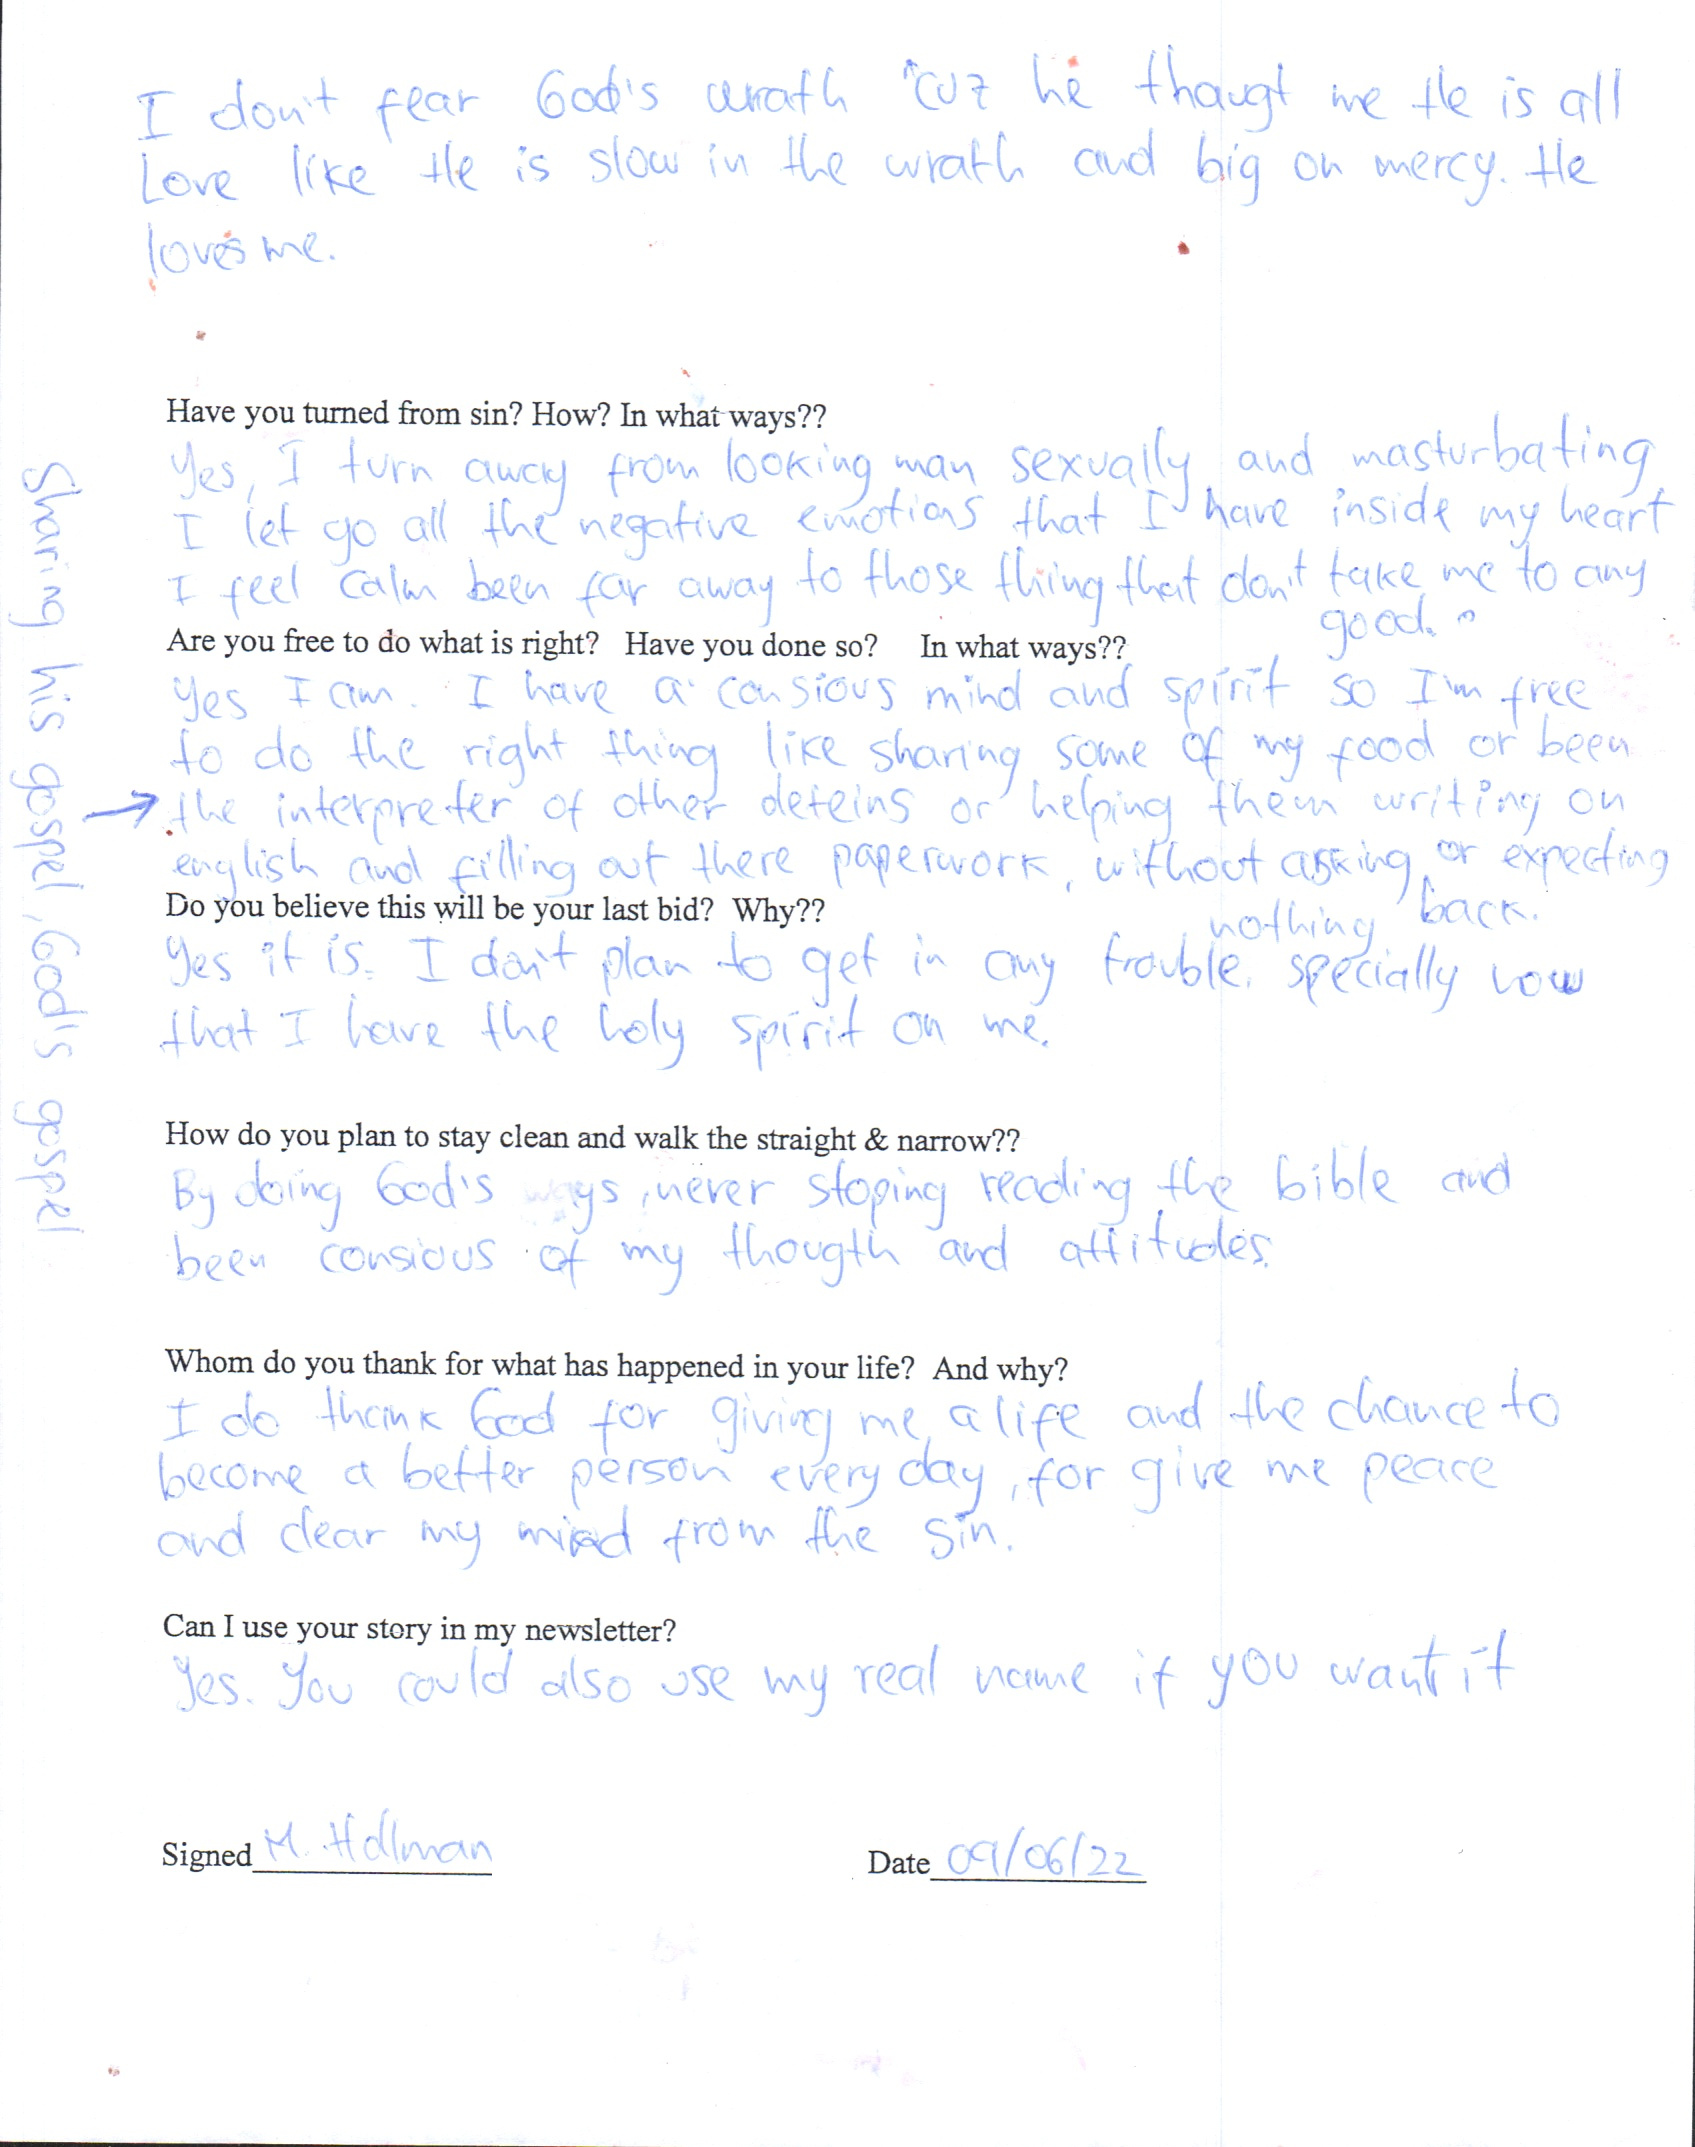 I don't fear God's wrath 'cuz he thaugt me He is all
Love like He is slow in the wrath and big on mercy. He
loves me.
Have you turned from sin? How? In what ways??
Yes, I turn away from looking man sexually and masturbating
I let go all the negative emotions that I have inside my heart
I feel calm been far away to those thing that don't take me to any
good.
Are you free to do what is right? Have you done so? In what ways??
Yes I am. I have a consious mind and spirit so I'm free
to do the right thing like sharing some of my food or been
the interpreter of other deteins or helping them writing on
english and filling out there paperwork, without asking or expecting
nothing back.
Sharing his gospel, God's gospel
Do you believe this will be your last bid? Why??
Yes it is. I don't plan to get in any trouble. specially now
that I have the holy spirit on me.
How do you plan to stay clean and walk the straight & narrow??
By doing God's ways, never stoping reading the bible and
been consious of my thougth and attitudes.
Whom do you thank for what has happened in your life? And why?
I do thank God for giving me a life and the chance to
become a better person every day, for give me peace
and clear my mind from the sin.
Can I use your story in my newsletter?
Yes. You could also use my real name if you want it
Signed M. Hollman Date 09/06/22